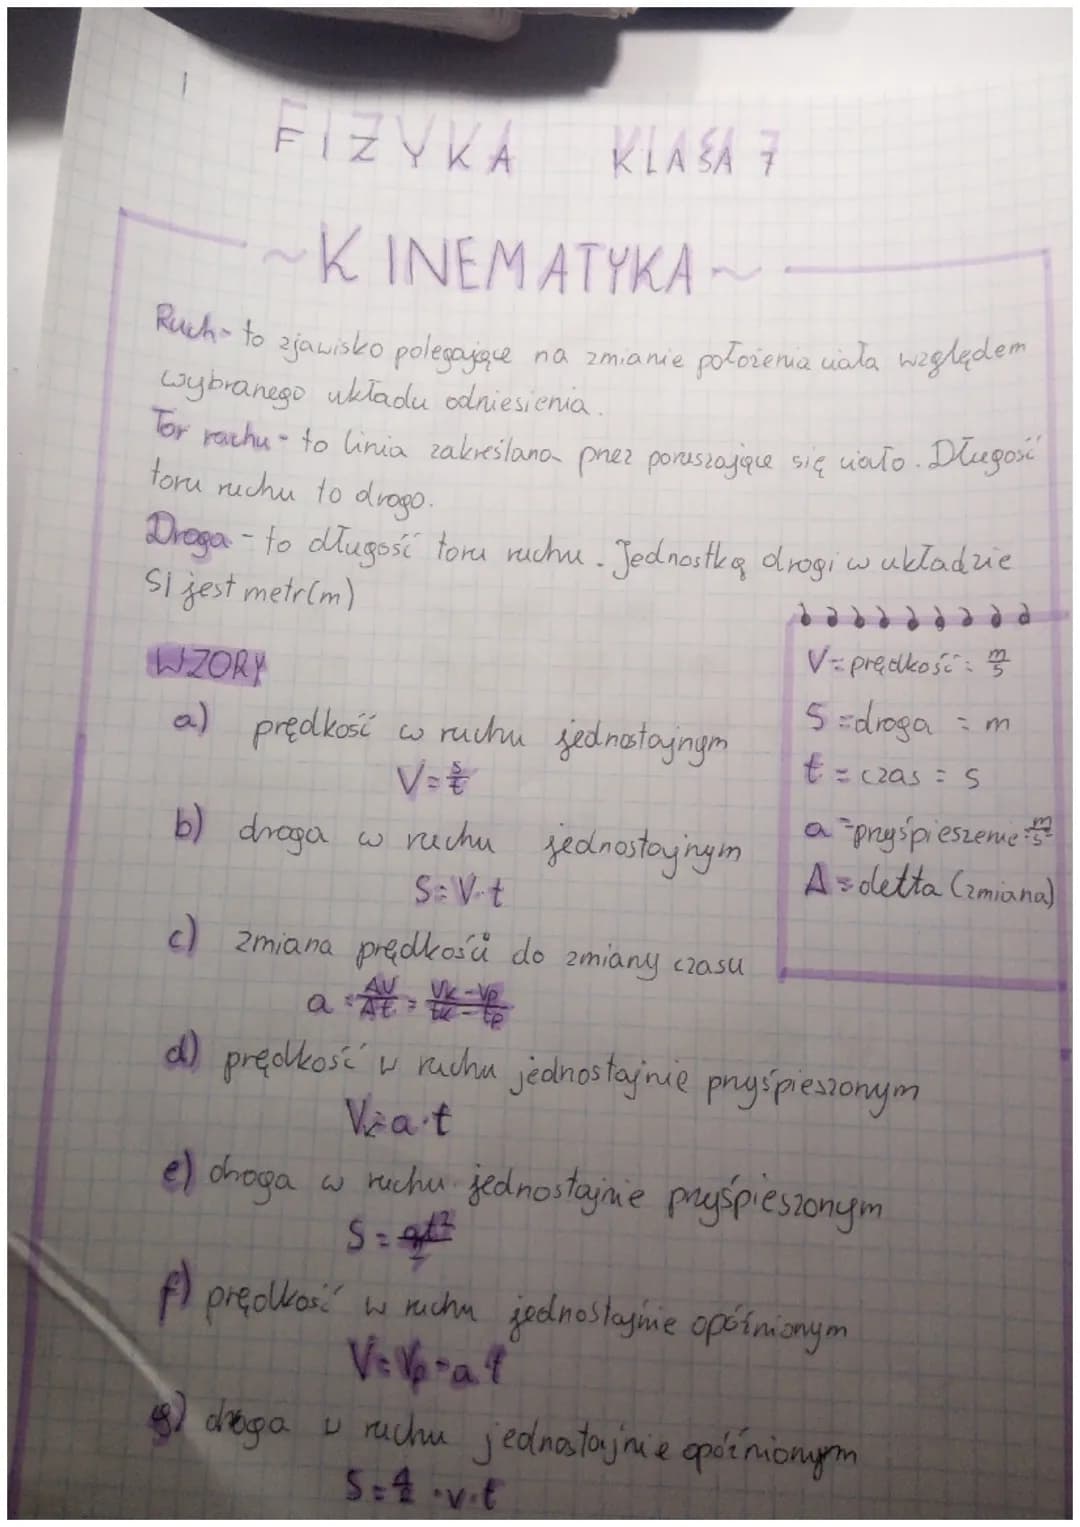 1
FIZYKA KLASA 7
~KINEMATYKA~
Ruch- to zjawisko polegające na zmianie położenia ciała względem
wybranego układu odniesienia.
Tor ruchu - to linia zakreślana przez poruszające się ciało. Długość
toru ruchu to droga.
Droga - to długość toru ruchu. Jednostką drogi w układzie
SI jest metr(m)
WZORY
a) prędkość w ruchu jednostajnym
V = s/t
b) droga w ruchu jednostajnym
S = V·t
c) zmiana prędkości do zmiany czasu
a = ΔV/Δt = Vk-Vp/tk-tp
d) prędkość w ruchu jednostajnie przyśpieszonym
V = a·t
e) droga w ruchu jednostajnie przyśpieszonym
S = at²/2
f) prędkość w ruchu jednostajnie opóźnionym
V = Vp - a·t
g) droga w ruchu jednostajnie opóźnionym
S = 1/2 ·v·t
V = prędkość = m/s
S = droga = m
t = czas = s
a = przyśpieszenie = m/s²
Δ = delta (zmiana)